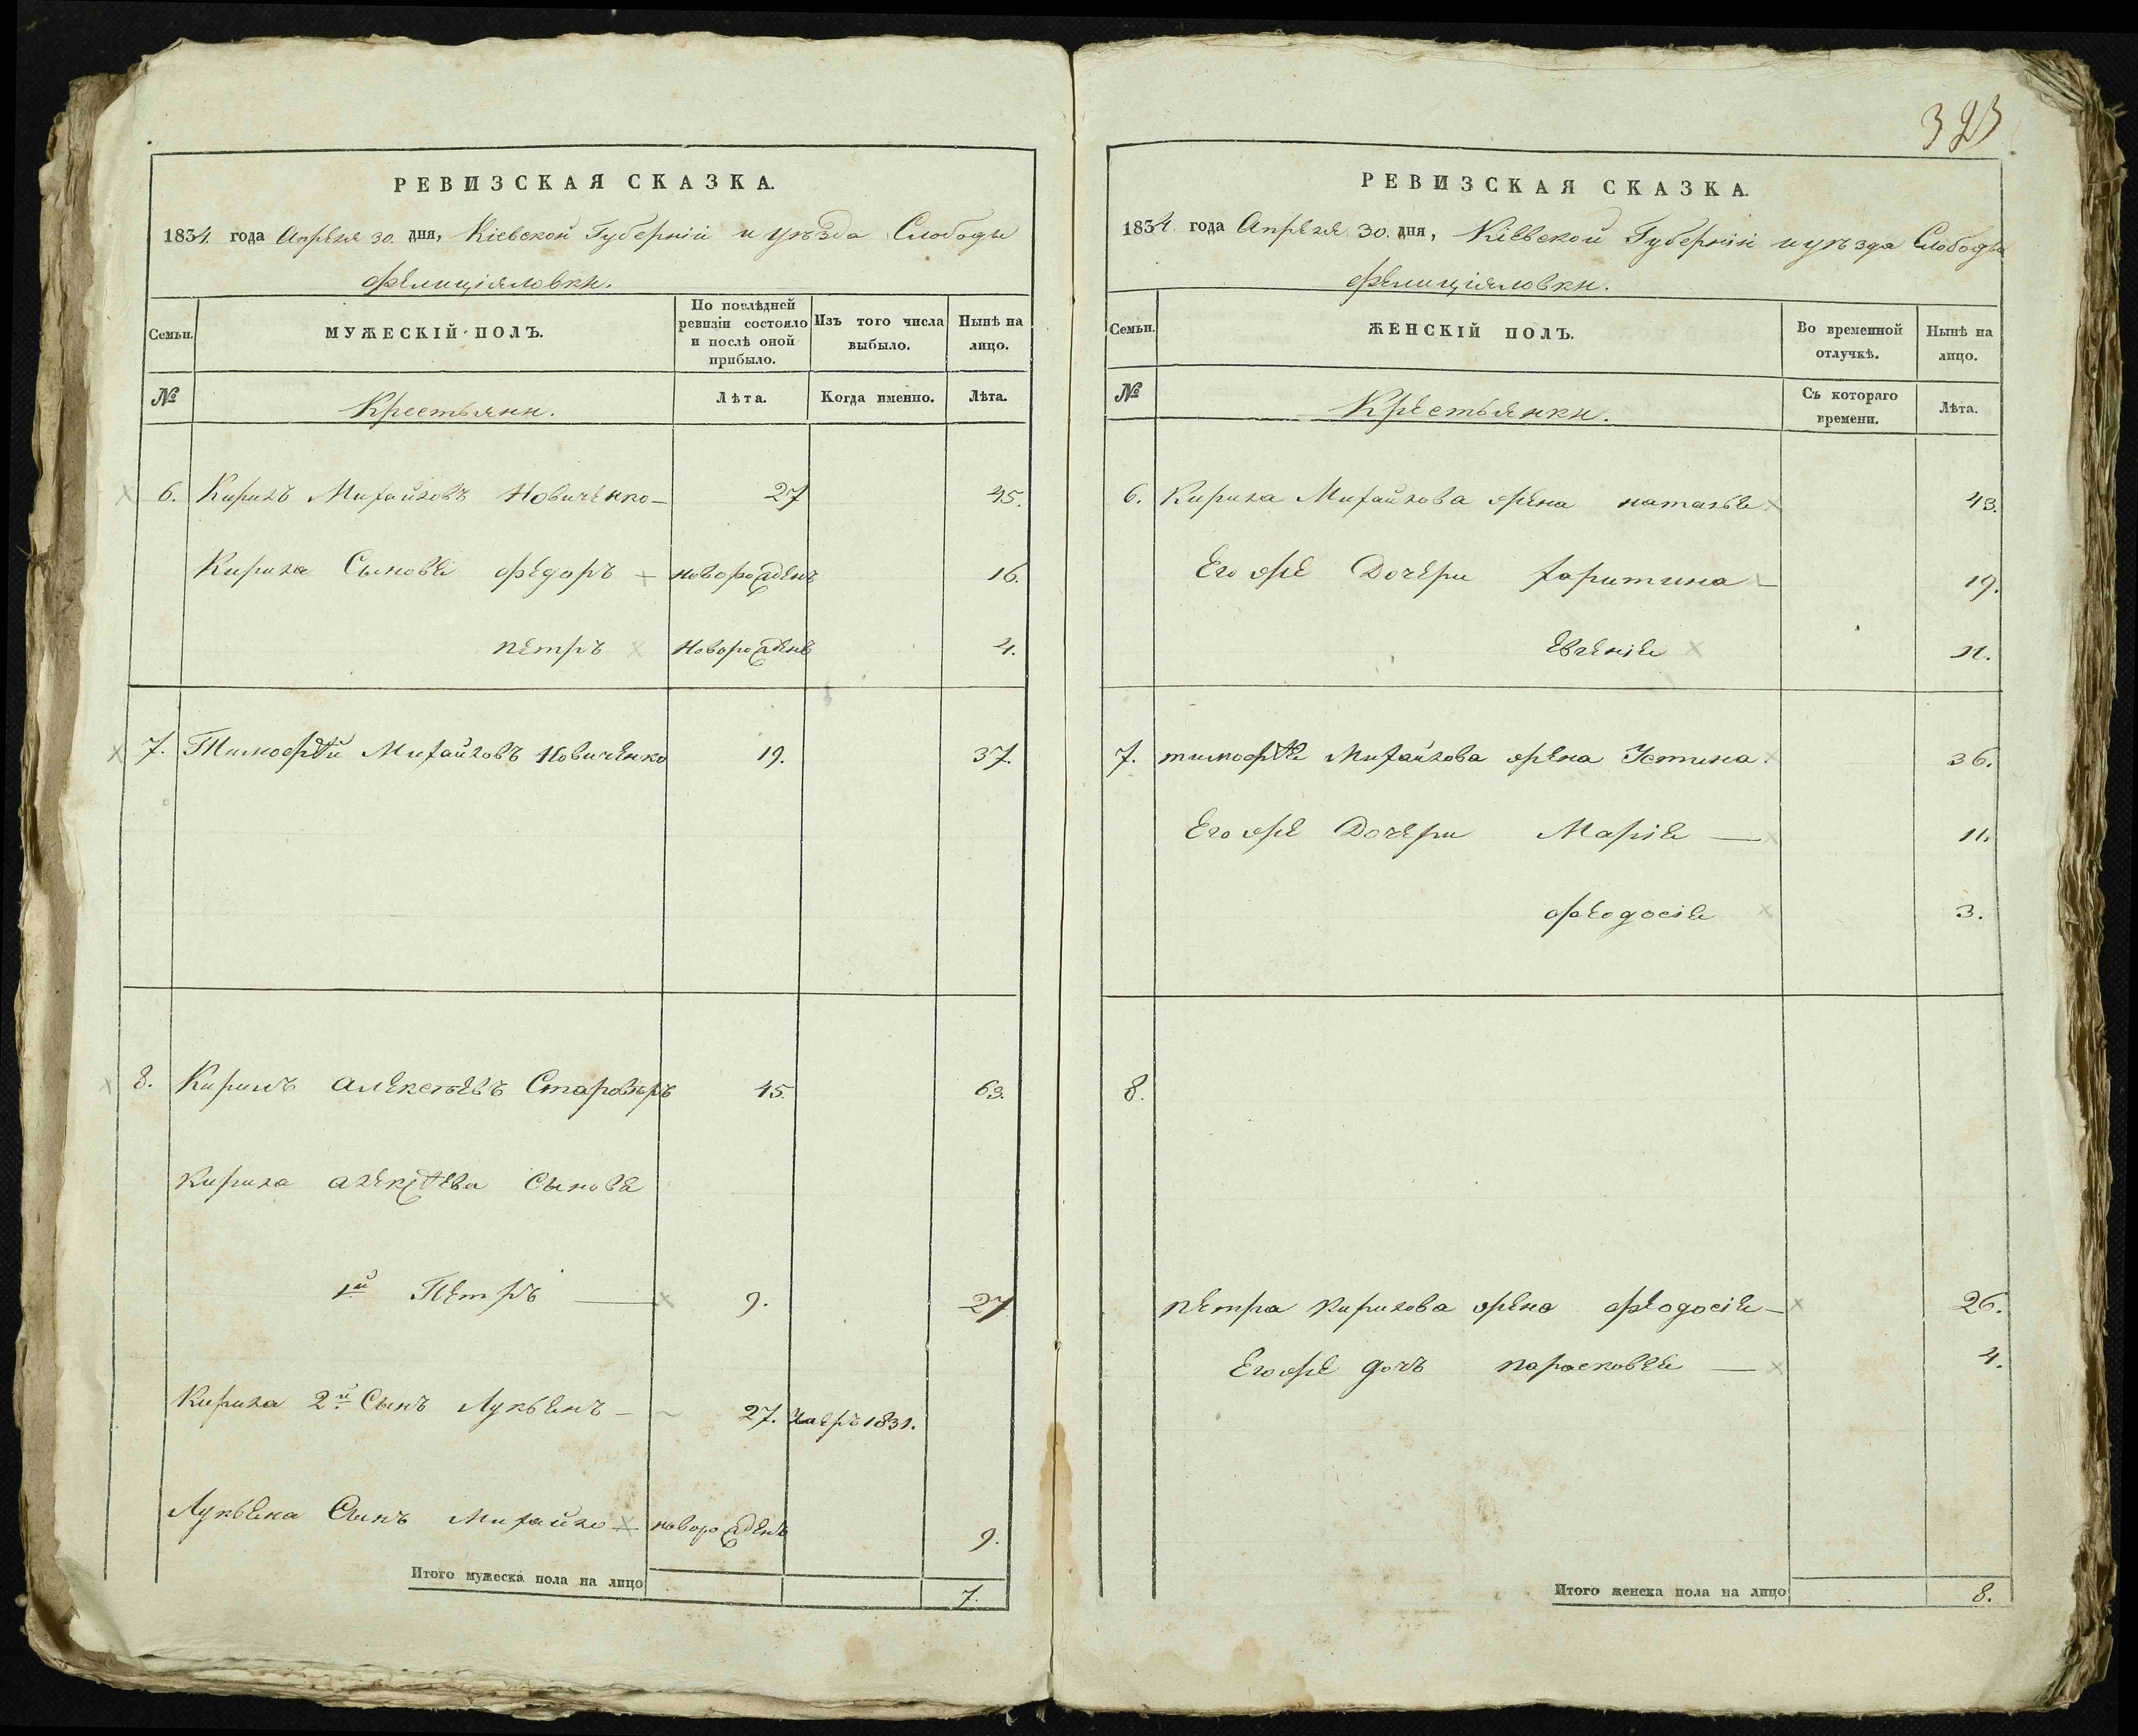 РЕВИЗСКАЯ СКАЗКА.
1834. года Апрѣля 30. дня, Кіевской Губерніи и уѣзда Слободы
Фелиціяловки.
Семьи.
МУЖЕСКІЙ ПОЛЪ.
По послѣдней ревизіи состояло и послѣ оной прибыло.
Изъ того числа выбыло.
Нынѣ на лицо.
№
Крестьяни.
Лѣта.
Когда именно.
Лѣта.
6. Кирилъ Михайловъ Новиченко — 27 45.
Кирила Сыновья Федоръ — новорожденъ 16.
Петръ новорожденъ 4.
7. Тимофѣй Михайловъ Новиченко 19. 37.
8. Кирилъ Алексѣевъ Староверъ 45. 63.
Кирила Алексѣева Сыновья
1й Петръ — 9. 27
Кирила 2й Сынъ Лукьянъ — 27. умеръ 1831.
Лукьяна Сынъ Михайло — новорожденъ 9.
Итого мужеска пола на лицо 7.
323
РЕВИЗСКАЯ СКАЗКА.
1834. года Апрѣля 30. дня, Кіевской Губерніи и уѣзда Слободы
Фелиціяловки.
Семьи.
ЖЕНСКІЙ ПОЛЪ.
Во временной отлучкѣ.
Нынѣ на лицо.
№
Крестьянки.
Съ котораго времени.
Лѣта.
6. Кирила Михайлова жена Наталья 43.
Его же Дочери Харитина — 19.
Евгенія 11.
7. Тимофѣя Михайлова жена Устина 36.
Его же Дочери Марія — 11.
Феодосія 3.
8.
Петра Кирилова жена Феодосія — 26.
Его же дочь Парасковея — 4.
Итого женска пола на лицо 8.